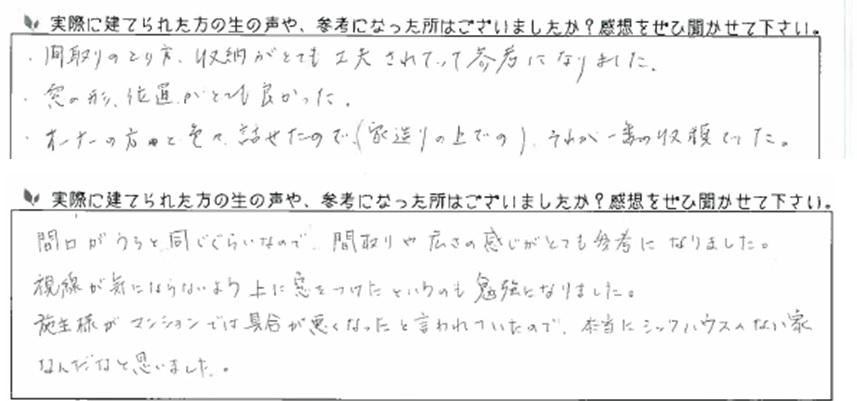 実際に建てられた方の生の声や、参考になった所はございましたか？感想をぜひ聞かせて下さい。
・間取りのとり方、収納がとても工夫されてって参考になりました。
・窓の形、位置がとても良かった。
・オーナーの方と色々話せたので、(家造りの上での)、それが一番の収穫でした。
実際に建てられた方の生の声や、参考になった所はございましたか？感想をぜひ聞かせて下さい。
間口がうちと同じぐらいなので、間取りや広さの感じがとても参考になりました。
視線が気にならないよう上に窓をつけたというのも勉強になりました。
施主様がマンションでは具合が悪くなったと言われていたので、本当にシックハウスのない家
なんだなと思いました。